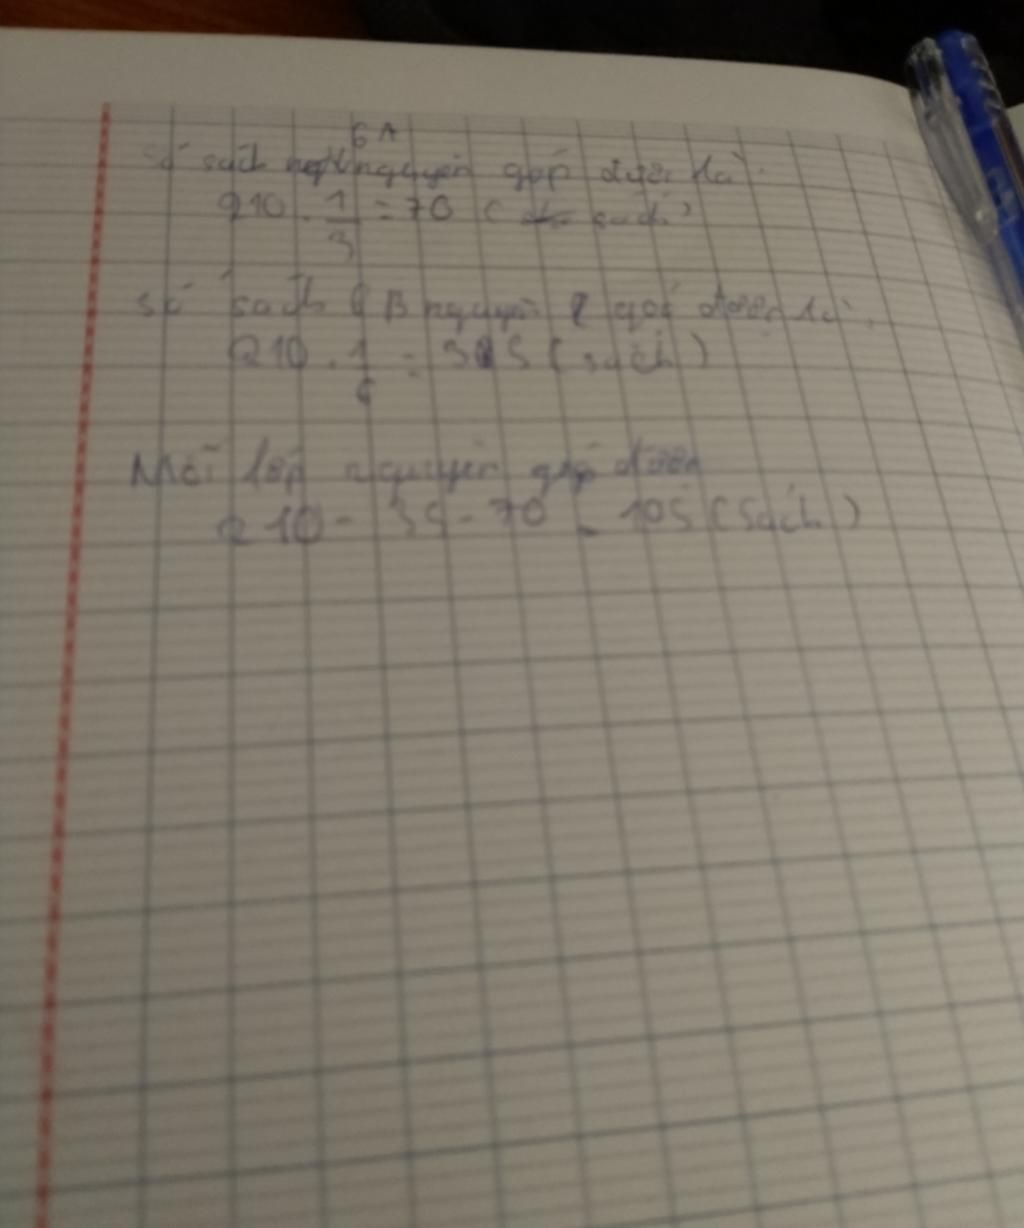 6A
Số sách nguyên góp được là
210 . 1/3 = 70 ( sách )
Số sách 6B nguyên góp được là
210 . 1/6 = 35 ( sách )
Mỗi lớp nguyên góp được
210 - 35 - 70 = 105 ( sách )